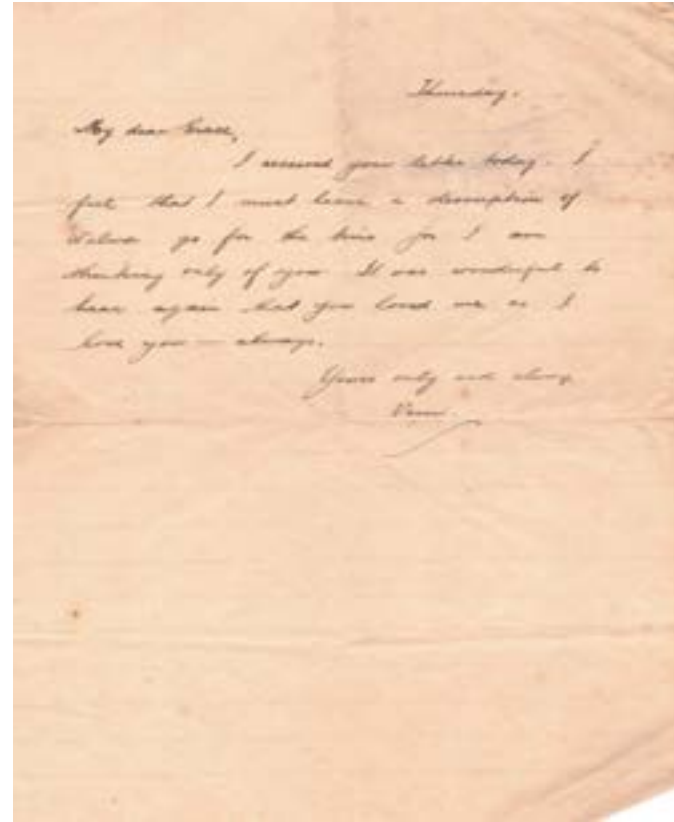 Thursday.
My dear
I received your letter today. I
feel that I must leave a description of
go for the time for I am
thinking only of you. It was wonderful to
hear again that you loved me as I
love you — always.
Yours only and always